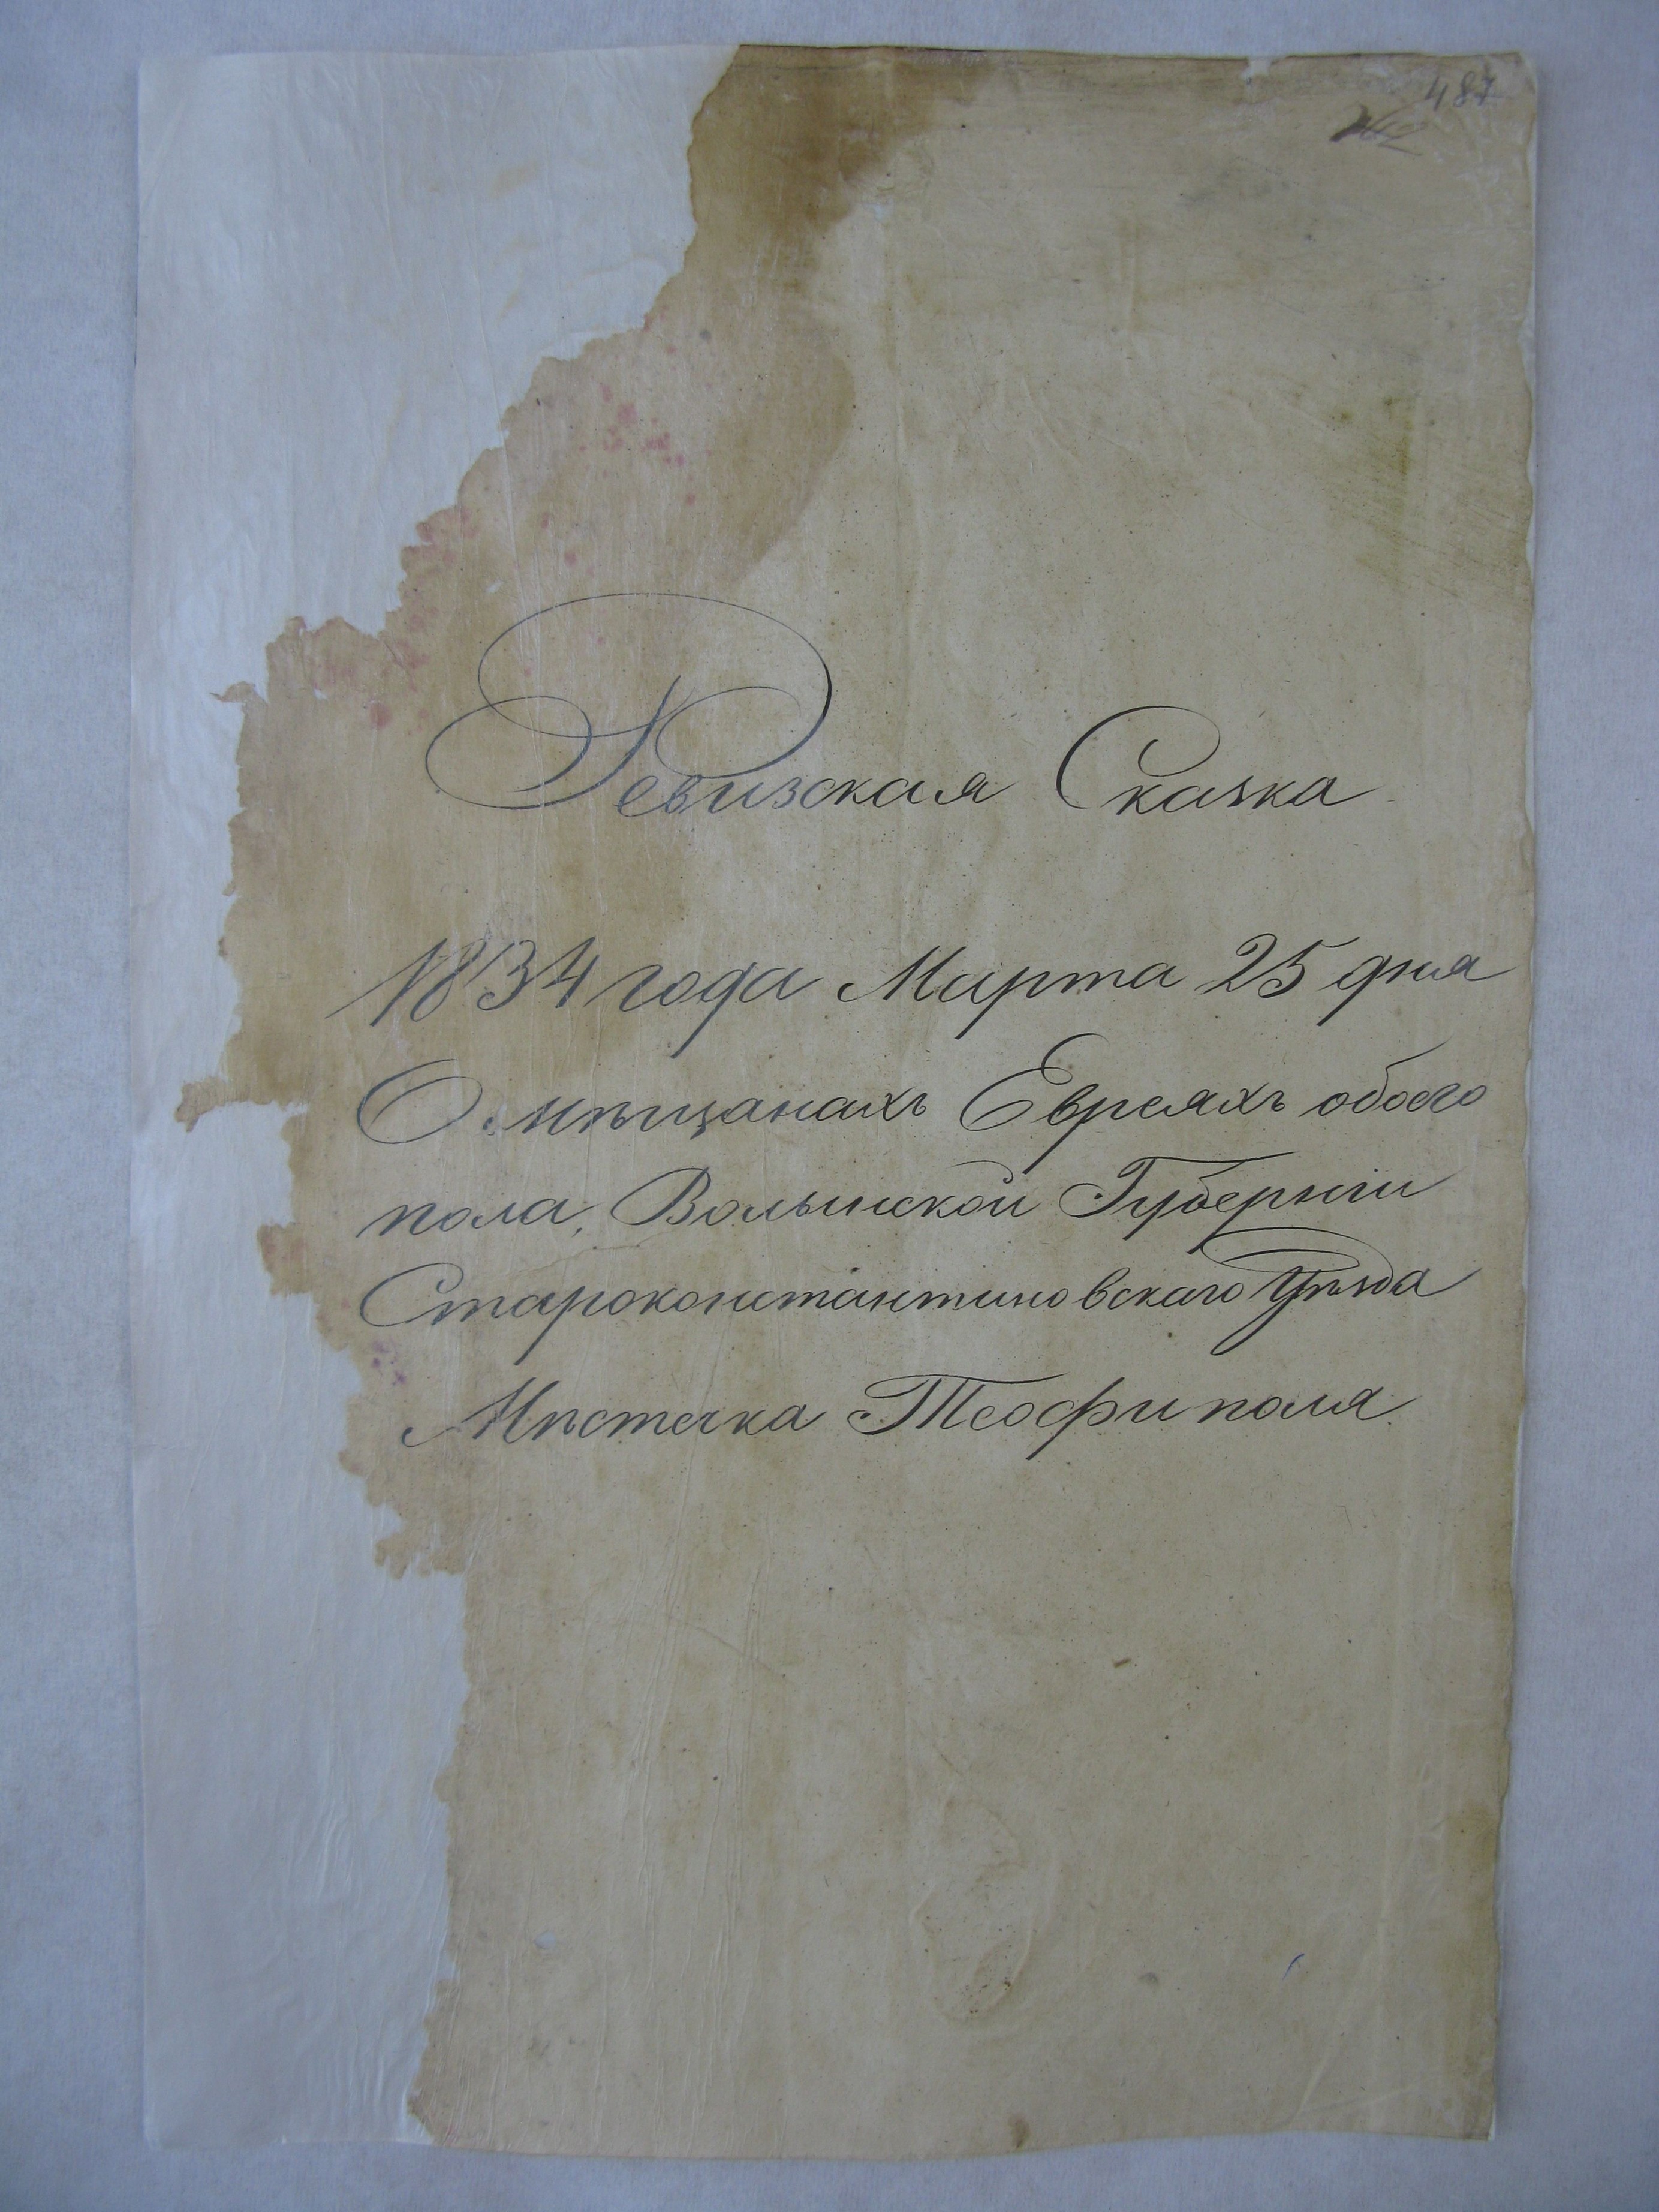 487
Ревизская Сказка
1834 года Марта 25 дня
О мѣщанахъ Евреяхъ обоего
пола, Волынской Губернiи
Староконстантиновскаго Уѣзда
Мѣстечка Теофиполя